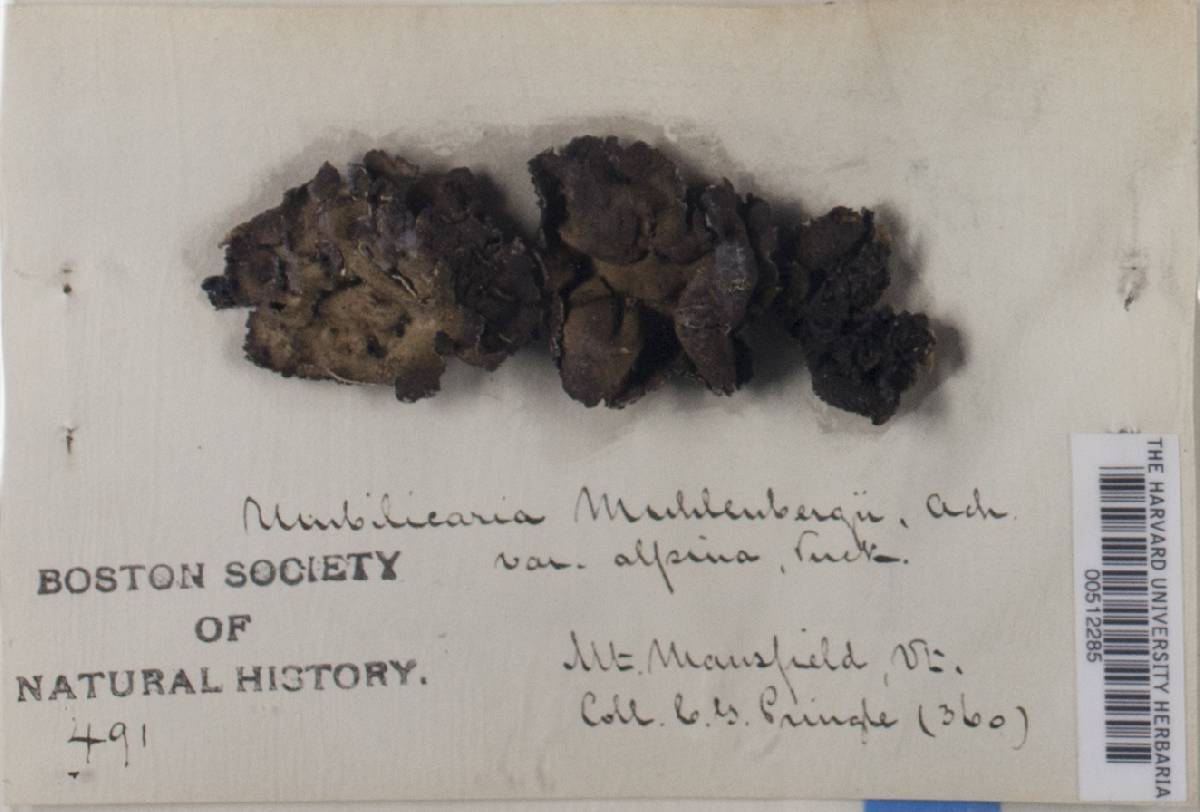 Umbilicaria Muhlenbergii, Ach.
var. alpina, Tuck.
BOSTON SOCIETY
OF
NATURAL HISTORY.
491
Mt. Mansfield, Vt.
Coll. C. G. Pringle (360)
THE HARVARD UNIVERSITY HERBARIA
00512285